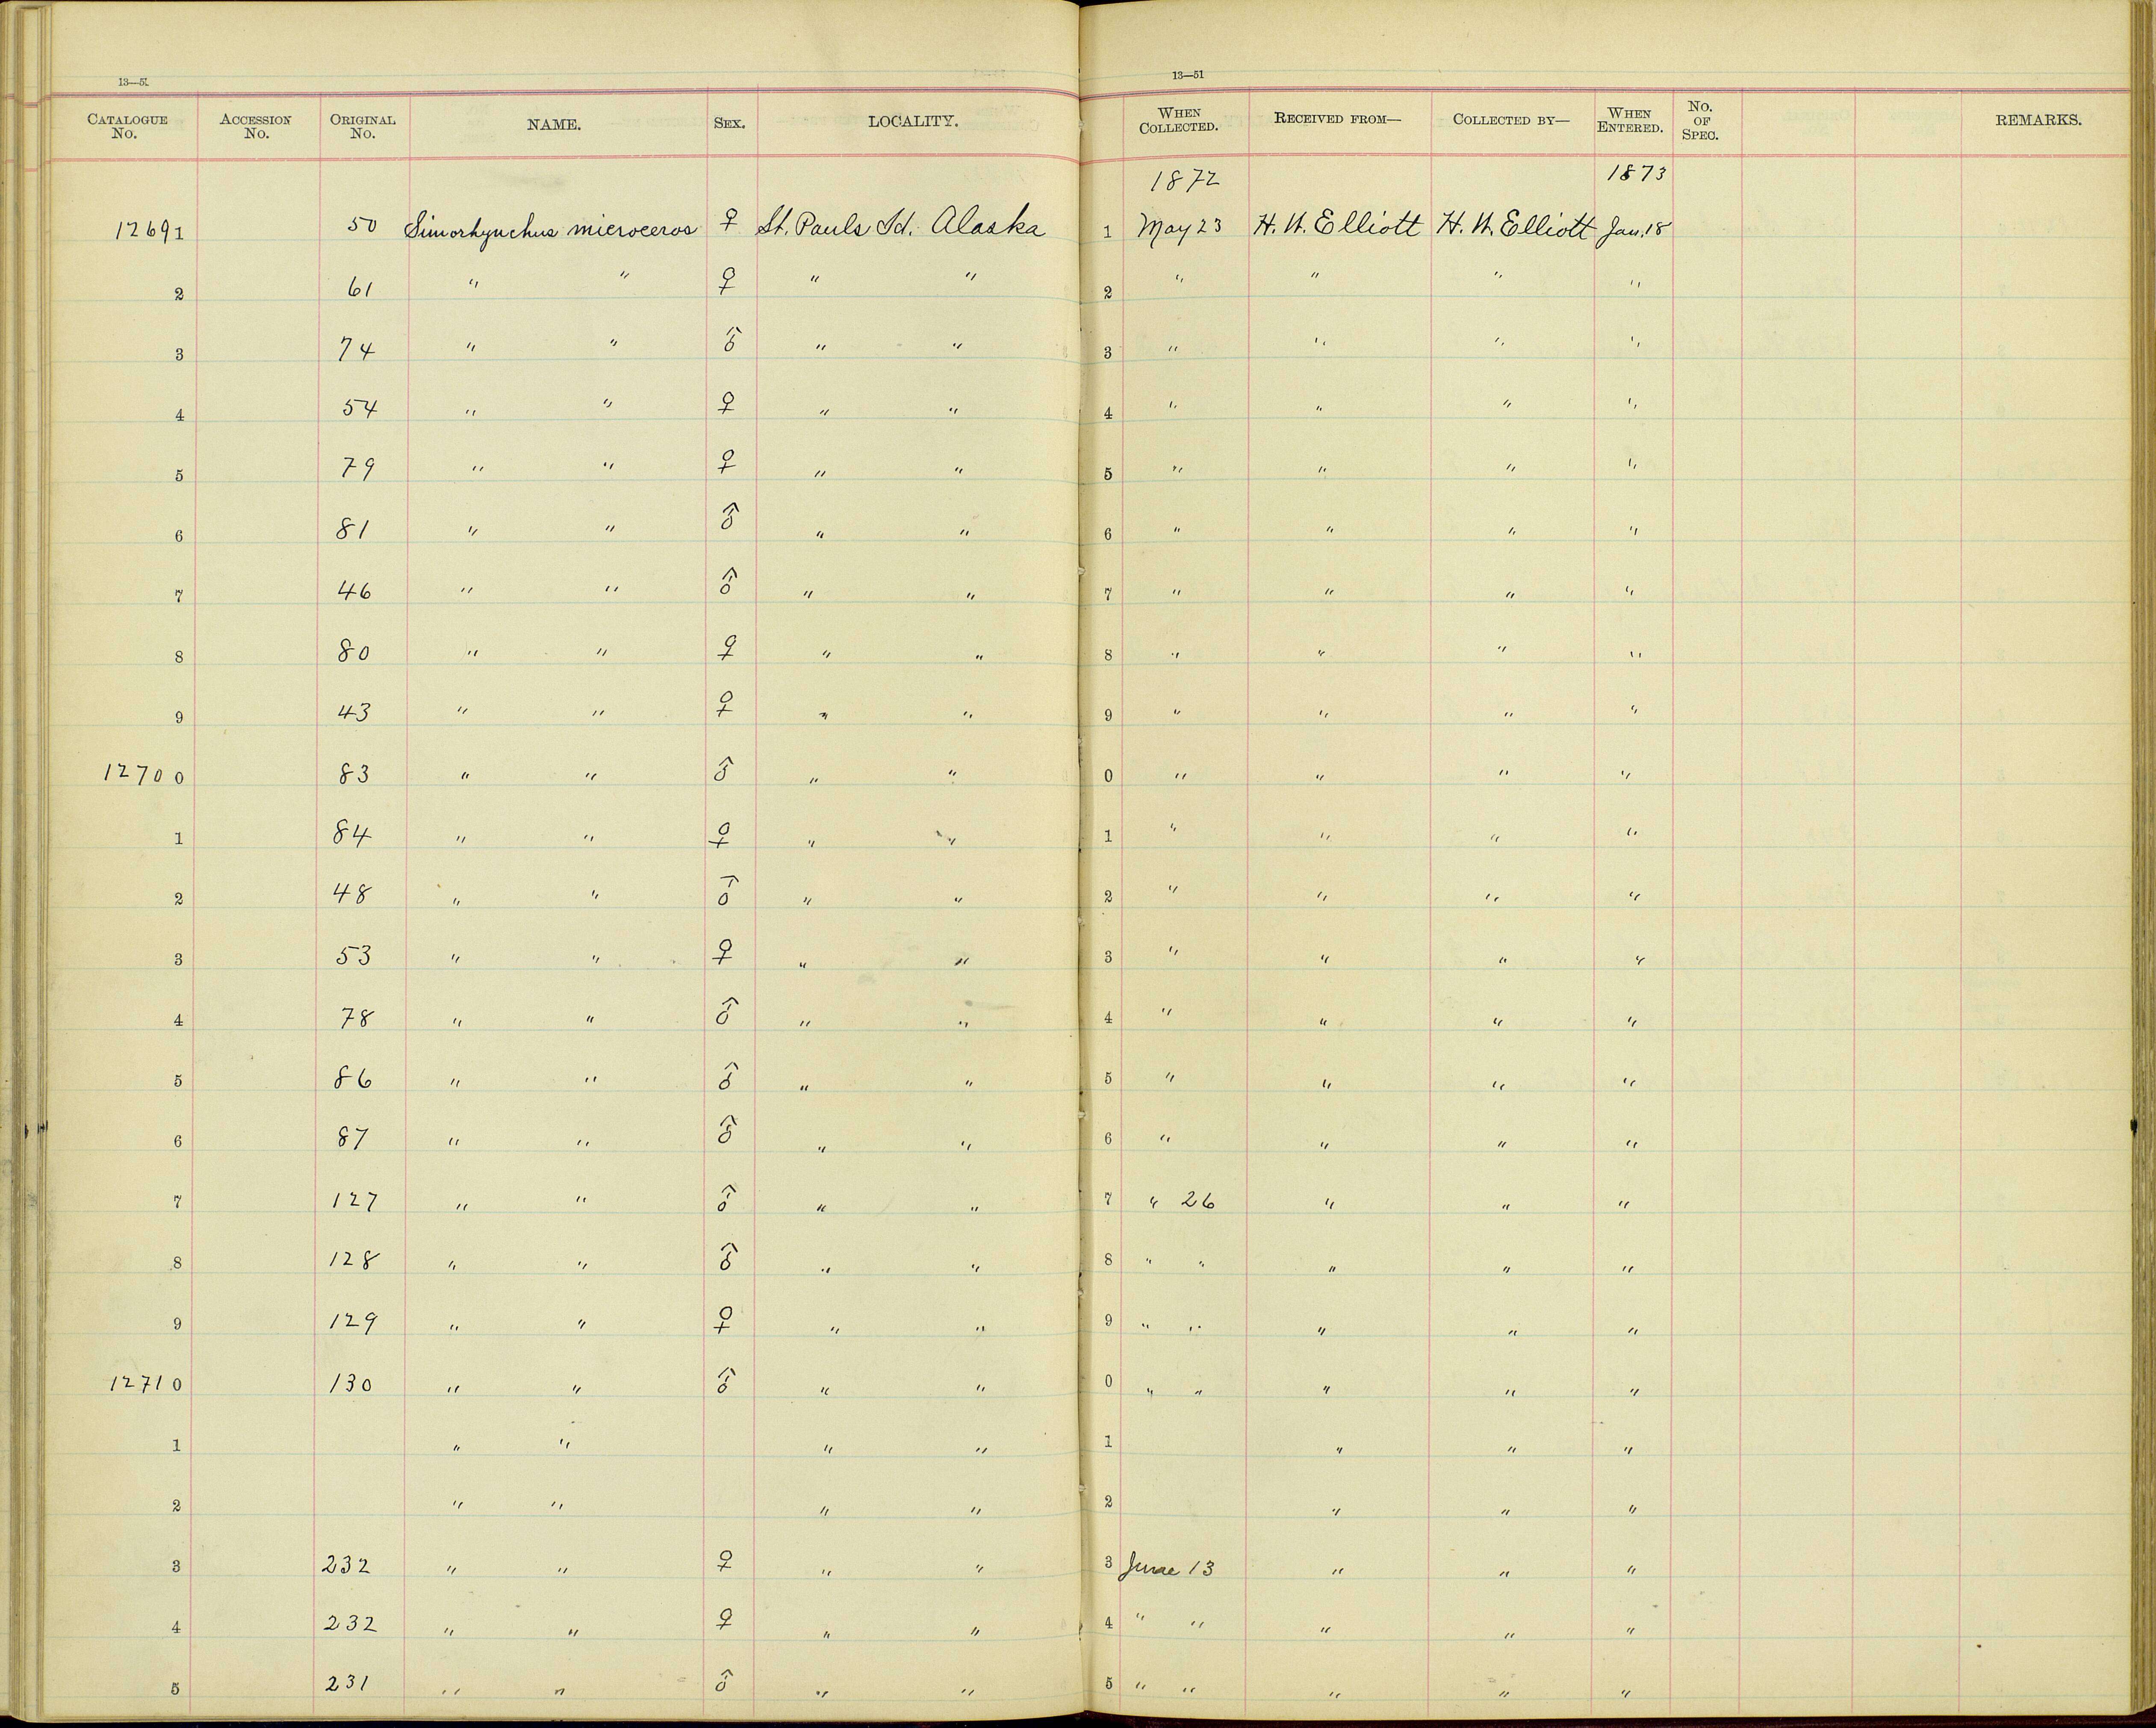 13—51 13—51
CATALOGUE No. ACCESSION No. ORIGINAL No. NAME. SEX. LOCALITY. WHEN COLLECTED. RECEIVED FROM— COLLECTED BY— WHEN ENTERED. No. OF SPEC. REMARKS.
1872 1873
12691 50 Simorhynchus microceros ♀ St. Pauls Id. Alaska 1 May 23 H. W. Elliott H. W. Elliott Jan. 18
2 61 " " ♀ " " 2 " " " "
3 74 " " ♂ " " 3 " " " "
4 54 " " ♀ " " 4 " " " "
5 79 " " ♀ " " 5 " " " "
6 81 " " ♂ " " 6 " " " "
7 46 " " ♂ " " 7 " " " "
8 80 " " ♀ " " 8 " " " "
9 43 " " ♀ " " 9 " " " "
12700 83 " " ♂ " " 0 " " " "
1 84 " " ♀ " " 1 " " " "
2 48 " " ♂ " " 2 " " " "
3 53 " " ♀ " " 3 " " " "
4 78 " " ♂ " " 4 " " " "
5 86 " " ♂ " " 5 " " " "
6 87 " " ♂ " " 6 " " " "
7 127 " " ♂ " " 7 " 26 " " "
8 128 " " ♂ " " 8 " " " " "
9 129 " " ♀ " " 9 " " " " "
12710 130 " " ♂ " " 0 " " " " "
1 " " " " 1 " " "
2 " " " " 2 " " "
3 232 " " ♀ " " 3 June 13 " " "
4 232 " " ♀ " " 4 " " " " "
5 231 " " ♂ " " 5 " " " " "